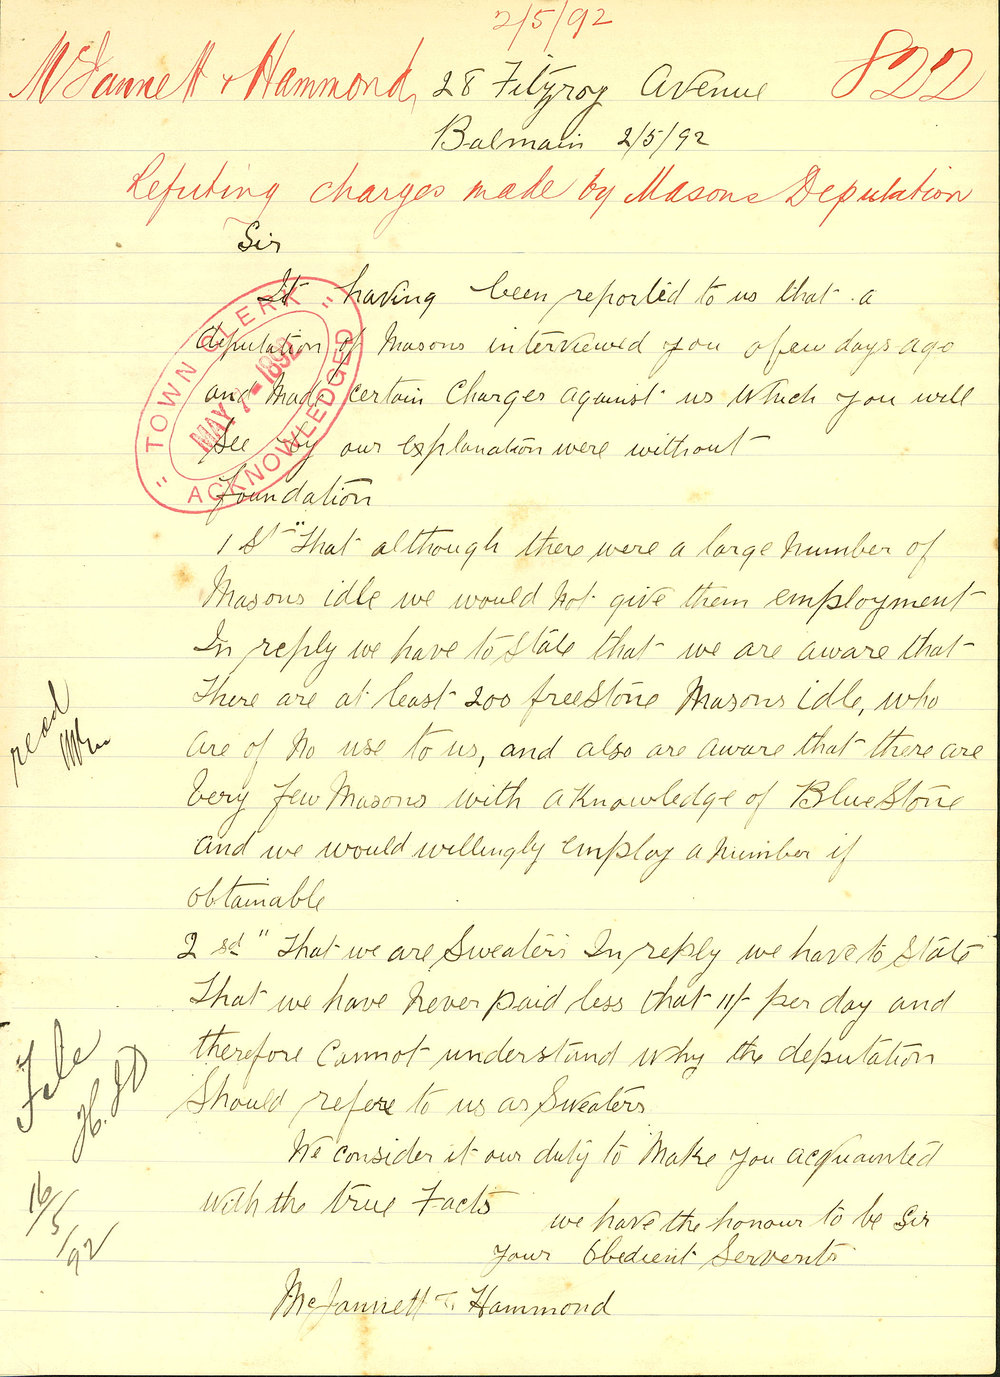 2/5/92
McJannett & Hammond, 28 Fitzroy Avenue 822
Balmain 2/5/92
Refuting charges made by Masons Deputation
Sir
It having been reported to us that a
deputation of Masons interviewed you a few days ago
and Made certain Charges against us Which you will
See by our explanation were without
Foundation
"TOWN CLERK"
MAY 7-1892
ACKNOWLEDGED
1 St "That although there were a large Number of
Masons idle we would Not give them employment
In reply we have to State that we are aware that
There are at least 200 freeStone Masons idle, who
are of No use to us, and also are aware that there are
Very few Masons with a Knowledge of BlueStone
and we would willingly employ a Number if
obtainable
2 sd " That we are Sweaters In reply we have to State
That we have Never paid less that 11/- per day and
therefore Cannot understand why the deputation
Should refere to us as Sweaters
We consider it our duty to Make you acquainted
With the true Facts
we have the honour to be Sir
your Obedient Servents
McJannett & Hammond
read
File
16/5/92